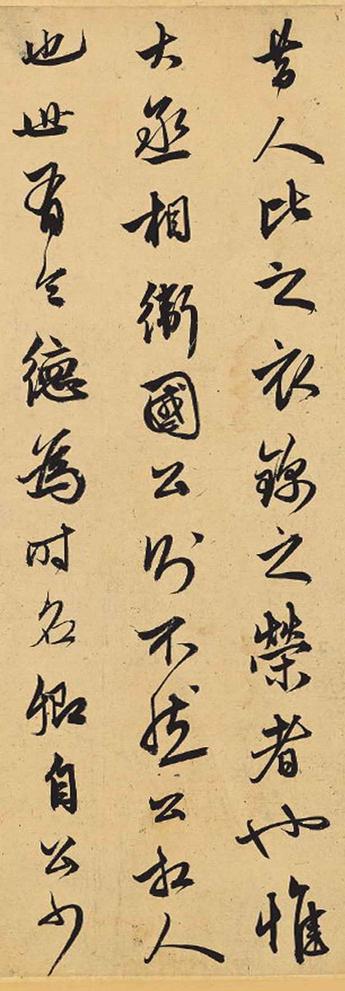 昔人比之衣錦之榮者也惟
大丞相衛國公則不然公相人
也世有令德為時名卿自公少